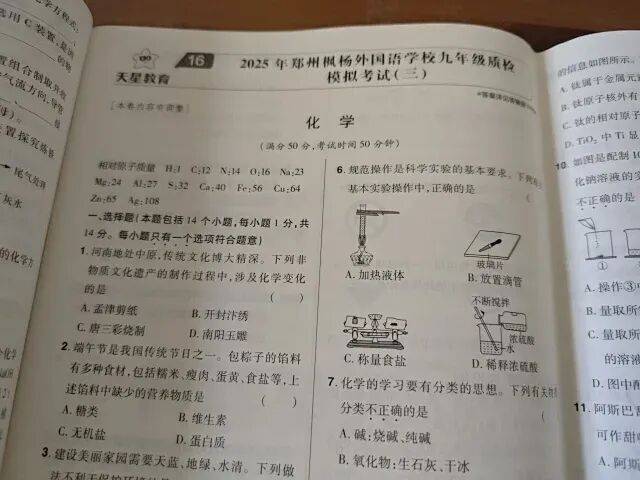 学方程式:
选用 C 装置,是
的
置组合制取并
气流方向,导管
母)。
置探究炼
尾气处理
灰水
的化学方
天星教育
16
2025 年郑州枫杨外国语学校九年级质检
模拟考试(三)
[本卷内容有调整]
化 学
(满分 50 分,考试时间 50 分钟)
相对原子质量 H:1 C:12 N:14 O:16 Na:23
Mg:24 Al:27 S:32 Ca:40 Fe:56 Cu:64
Zn:65 Ag:108
一、选择题(本题包括 14 个小题,每小题 1 分,共
14 分。每小题只有一个选项符合题意)
1. 河南地处中原,传统文化博大精深。下列非
物质文化遗产的制作过程中,涉及化学变化
的是 ( )
A. 孟津剪纸 B. 开封汴绣
C. 唐三彩烧制 D. 南阳玉雕
2. 端午节是我国传统节日之一。包粽子的馅料
有多种食材,包括糯米、瘦肉、蛋黄、食盐等,上
述馅料中缺少的营养物质是 ( )
A. 糖类 B. 维生素
C. 无机盐 D. 蛋白质
3. 建设美丽家园需要天蓝、地绿、水清。下列做
6. 规范操作是科学实验的基本要求。下列
基本实验操作中,正确的是 (
玻璃片
A. 加热液体 B. 放置滴管
不断搅拌
浓硫酸
水
C. 称量食盐 D. 稀释浓硫酸
7. 化学的学习要有分类的思想。下列有关
分类不正确的是 (
A. 碱:烧碱、纯碱
B. 氧化物:生石灰、干冰
的信息如图所示。
A. 钛属于金属元
B. 钛原子核外有
C. 钛的相对原子
D. TiO₂ 中 Ti 显
10. 如图是配制 10
化钠溶液的实
不正确的是
①
A. 操作③中
B. 量取所需
C. 量取所
的溶液
D. 图中酒
11. 阿斯巴
可作甜